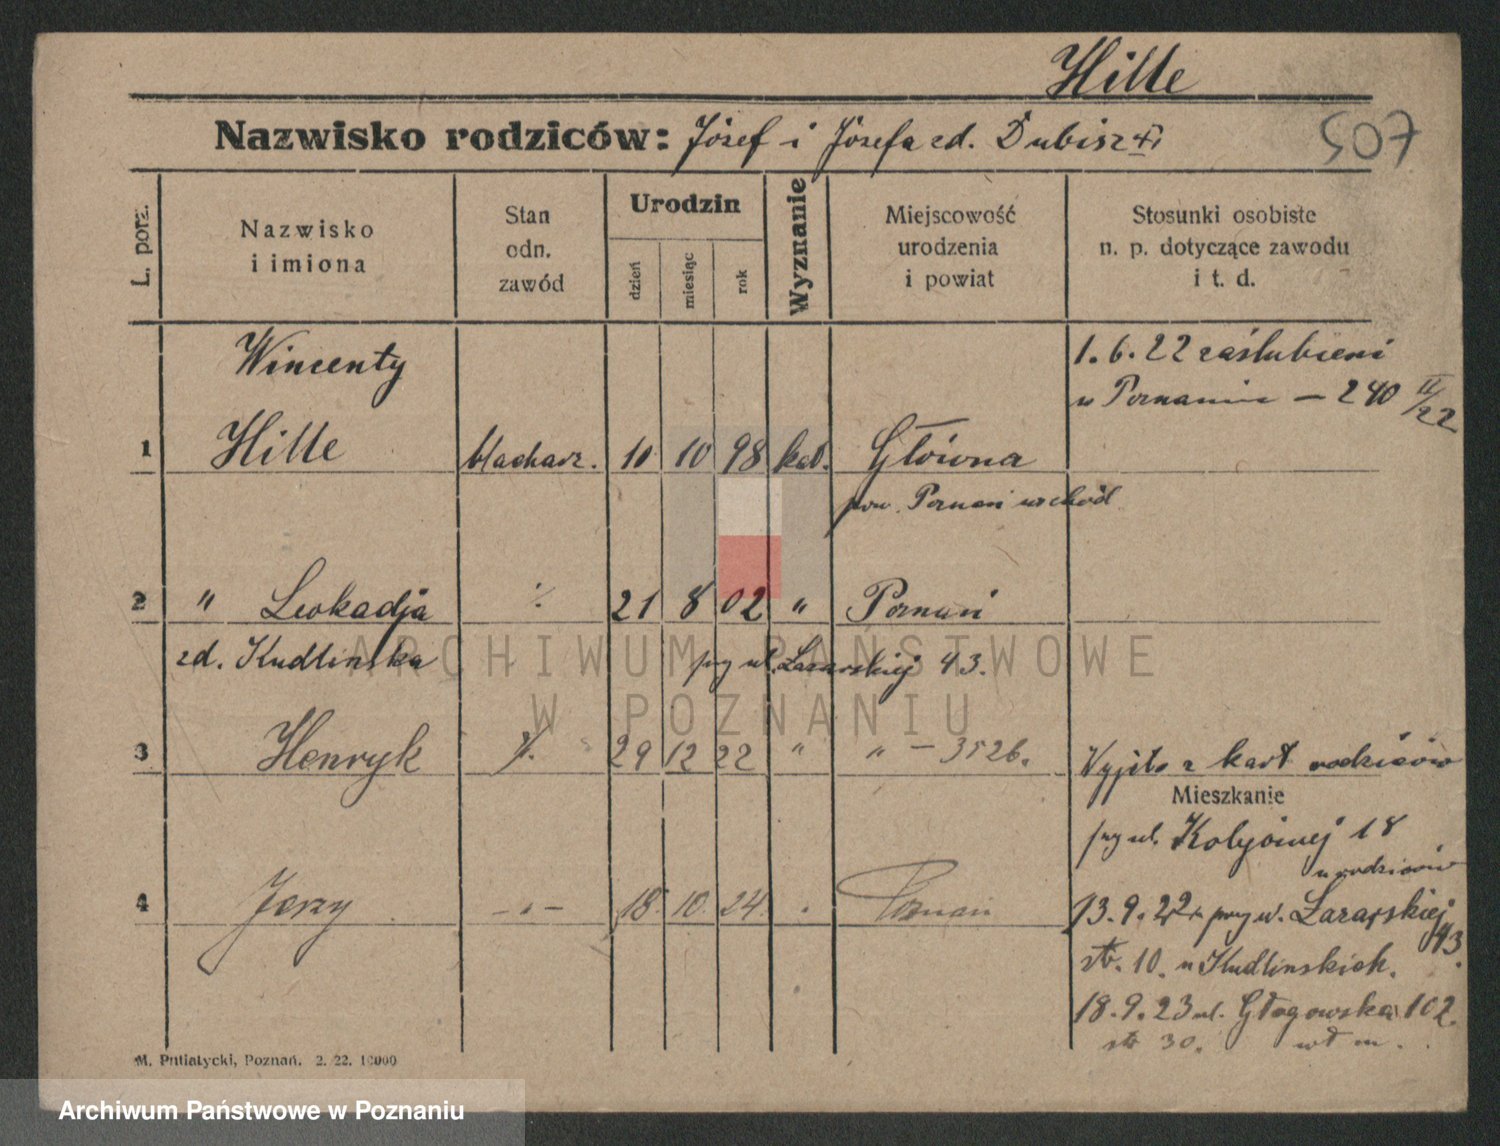 Hille
Nazwisko rodziców: Józef i Józefa zd. Dubisz
507
L. porz.
Nazwisko i imiona
Stan odn. zawód
Urodzin
dzień
miesiąc
rok
Wyznanie
Miejscowość urodzenia i powiat
Stosunki osobiste n. p. dotyczące zawodu i t. d.
Wincenty
1.6.22 zaślubieni
w Poznaniu — 240 II/22
1 Hille blacharz. 10 10 98 kat. Główna
pow. Poznań wschód
2 " Leokadja ·/. 21 8 02 " Poznań
zd. Kudlinska przy ul. Łazarskiej 43.
3 Henryk ·/. 29 12 22 " " — 3526. Wyjśto z kart rodziców
Mieszkanie
przy ul. Kolejowej 18
u rodziców
4 Jerzy — " — 18 10 24 Poznań 13.9.22 przy ul. Łazarskiej 43.
str. 10. u Kudlinskich.
18.9.23 ul. Głogowska 102.
str 30. wł m.
M. Putiatycki, Poznań. 2. 22. 10000
ARCHIWUM PAŃSTWOWE
W POZNANIU
Archiwum Państwowe w Poznaniu